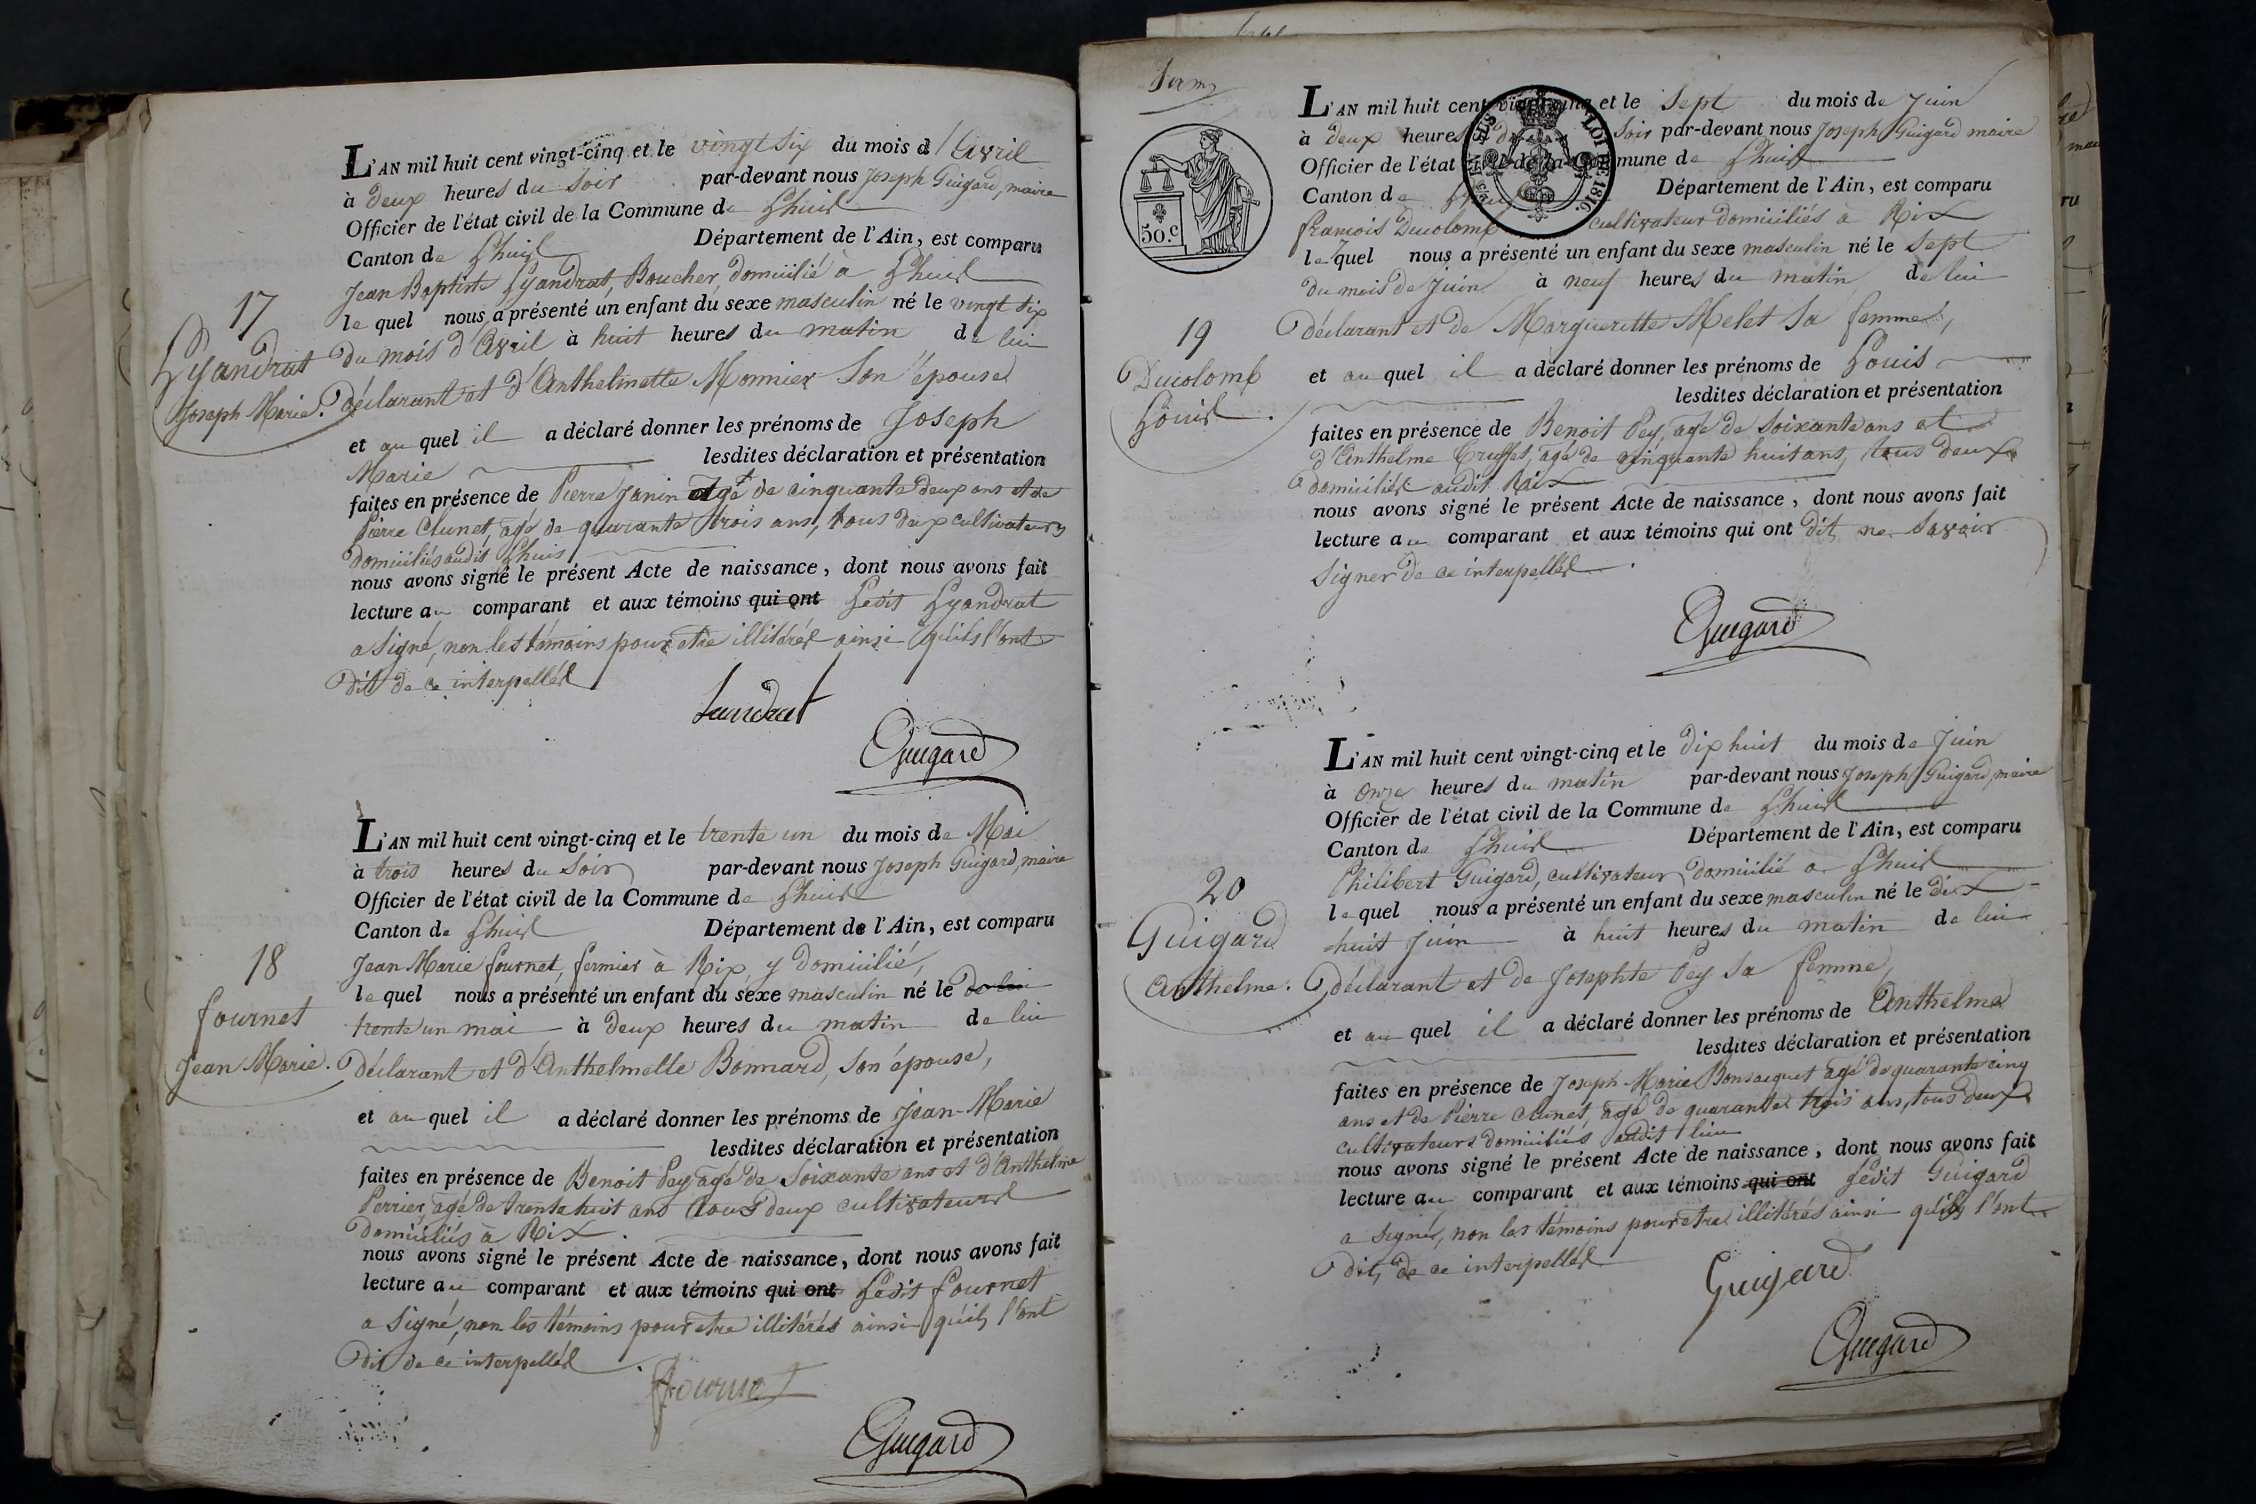 17
Lyandrat
Joseph Marie.
L'AN mil huit cent vingt-cinq et le vingt six du mois d'Avril
à deux heures du Soir par-devant nous Joseph Guigard, maire
Officier de l'état civil de la Commune de Lhuis
Canton de Lhuis Département de l'Ain, est comparu
Jean Baptiste Lyandrat, Boucher, domicilié à Lhuis
lequel nous a présenté un enfant du sexe masculin né le vingt six
du mois d'Avril à huit heures du matin de lui
déclarant et d'Anthelmette Monnier son épouse
et auquel il a déclaré donner les prénoms de Joseph
Marie lesdites déclaration et présentation
faites en présence de Pierre Janin agé de cinquante deux ans et de
Pierre Clunet, agé de quarante trois ans, tous deux cultivateurs
domiciliés audit Lhuis
nous avons signé le présent Acte de naissance, dont nous avons fait
lecture au comparant et aux témoins qui ont Ledit Lyandrat
a signé, non les témoins pour etre illitérés ainsi qu'ils l'ont
dit de ce interpellés
Landrat
Guigard
18
fournet
Jean Marie.
L'AN mil huit cent vingt-cinq et le trente un du mois de Mai
à trois heures du Soir par-devant nous Joseph Guigard, maire
Officier de l'état civil de la Commune de Lhuis
Canton de Lhuis Département de l'Ain, est comparu
Jean Marie fournet, fermier à Rix, y domicilié,
lequel nous a présenté un enfant du sexe masculin né le de lui
trente un mai à deux heures du matin de lui
déclarant et d'Anthelmette Bonnard, son épouse,
et auquel il a déclaré donner les prénoms de Jean-Marie
lesdites déclaration et présentation
faites en présence de Benoit Pey agé de soixante ans et d'Anthelme
Perrier, agé de trente huit ans tous deux cultivateurs
domiciliés à Rix.
nous avons signé le présent Acte de naissance, dont nous avons fait
lecture au comparant et aux témoins qui ont Ledit fournet
a signé, non les témoins pour etre illitérés ainsi qu'ils l'ont
dit de ce interpellés.
Fournet
Guigard
50.c
LOI DE 1816.
19
Ducolomb
Louis.
L'AN mil huit cent vingt-cinq et le sept du mois de Juin
à deux heures du Soir par-devant nous Joseph Guigard maire
Officier de l'état civil de la Commune de Lhuis
Canton de Lhuis Département de l'Ain, est comparu
francois Ducolomb cultivateur domiciliés à Rix
lequel nous a présenté un enfant du sexe masculin né le sept
du mois de Juin à neuf heures du matin de lui
déclarant et de Marguerette Melet sa femme,
et auquel il a déclaré donner les prénoms de Louis
lesdites déclaration et présentation
faites en présence de Benoit Pey, agé de soixante ans et
d'Anthelme Truffet, agé de cinquante huit ans, tous deux
domiciliés audit Rix
nous avons signé le présent Acte de naissance, dont nous avons fait
lecture au comparant et aux témoins qui ont dit ne savoir
signer de ce interpellés.
Guigard
20
Guigard
Anthelme.
L'AN mil huit cent vingt-cinq et le dix huit du mois de Juin
à onze heures du matin par-devant nous Joseph Guigard, maire
Officier de l'état civil de la Commune de Lhuis
Canton de Lhuis Département de l'Ain, est comparu
Philibert Guigard, cultivateur domicilié à Lhuis
lequel nous a présenté un enfant du sexe masculin né le dix
huit Juin à huit heures du matin de lui
déclarant et de Josephte Pey sa femme,
et auquel il a déclaré donner les prénoms de Anthelme
lesdites déclaration et présentation
faites en présence de Joseph-Marie Bonsacquet agé de quarante cinq
ans et de Pierre Clunet, agé de quarante trois ans, tous deux
cultivateurs domiciliés audit lieu
nous avons signé le présent Acte de naissance, dont nous avons fait
lecture au comparant et aux témoins qui ont Ledit Guigard
a signé, non les témoins pour etre illitérés ainsi qu'ils l'ont
dit, de ce interpellés
Guigard
Guigard